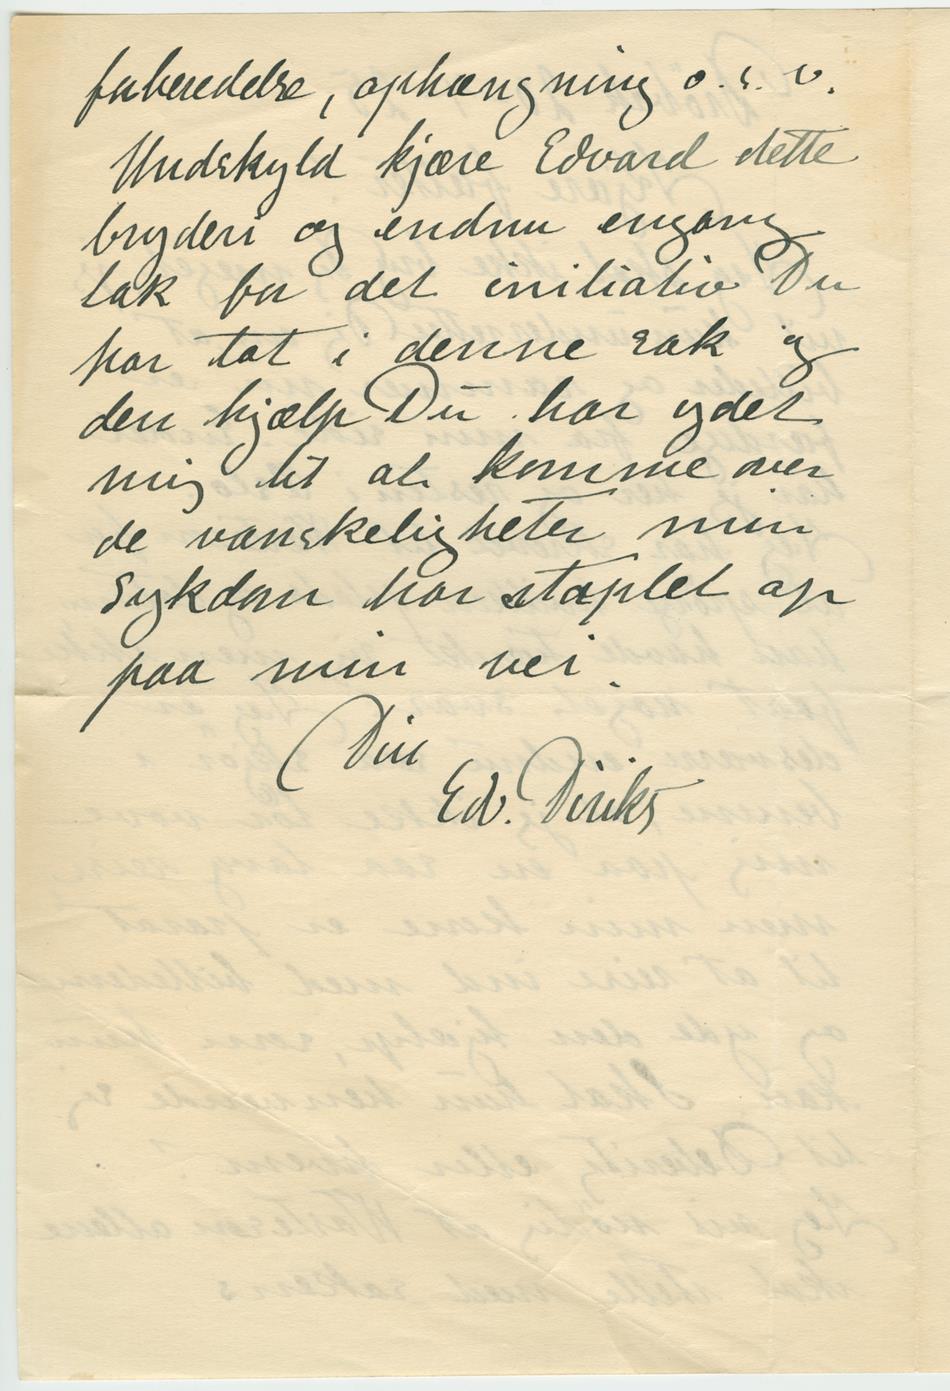 forberedelse, ophængning o. s. v.
Undskyld kjære Edvard dette
bryderi og endnu engang
tak for det initiativ Du
har tat i denne sak og
den hjælp Du har ydet
mig til at komme over
de vanskeligheter min
sykdom har stablet op
paa min vei.
Din
Edv. Diriks